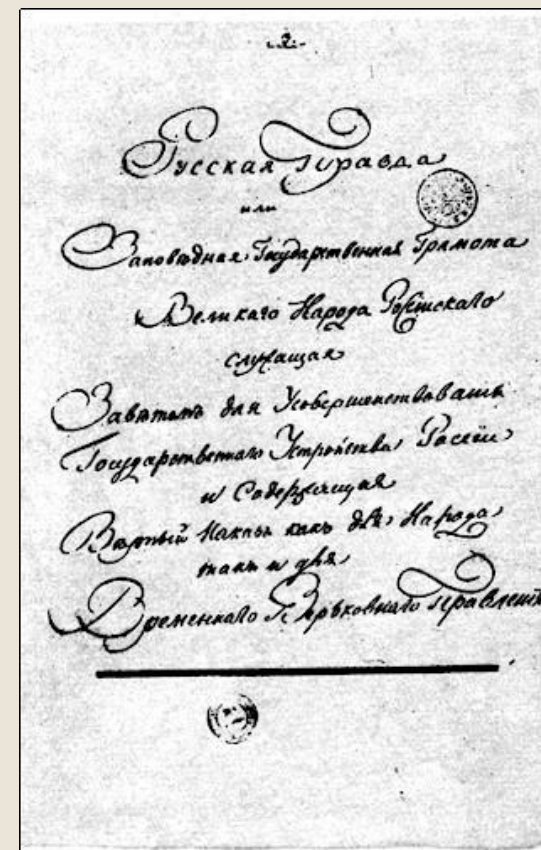 -2-
Русская Правда
или
Заповѣдная Государственная Грамота
Великаго Народа Россійскаго
служащая
Завѣтомъ для Усовершенствованія
Государственнаго Устройства Россіи
и Содержащая
Вѣрный Наказъ какъ для Народа
такъ и для
Временнаго Верьховнаго Правленія